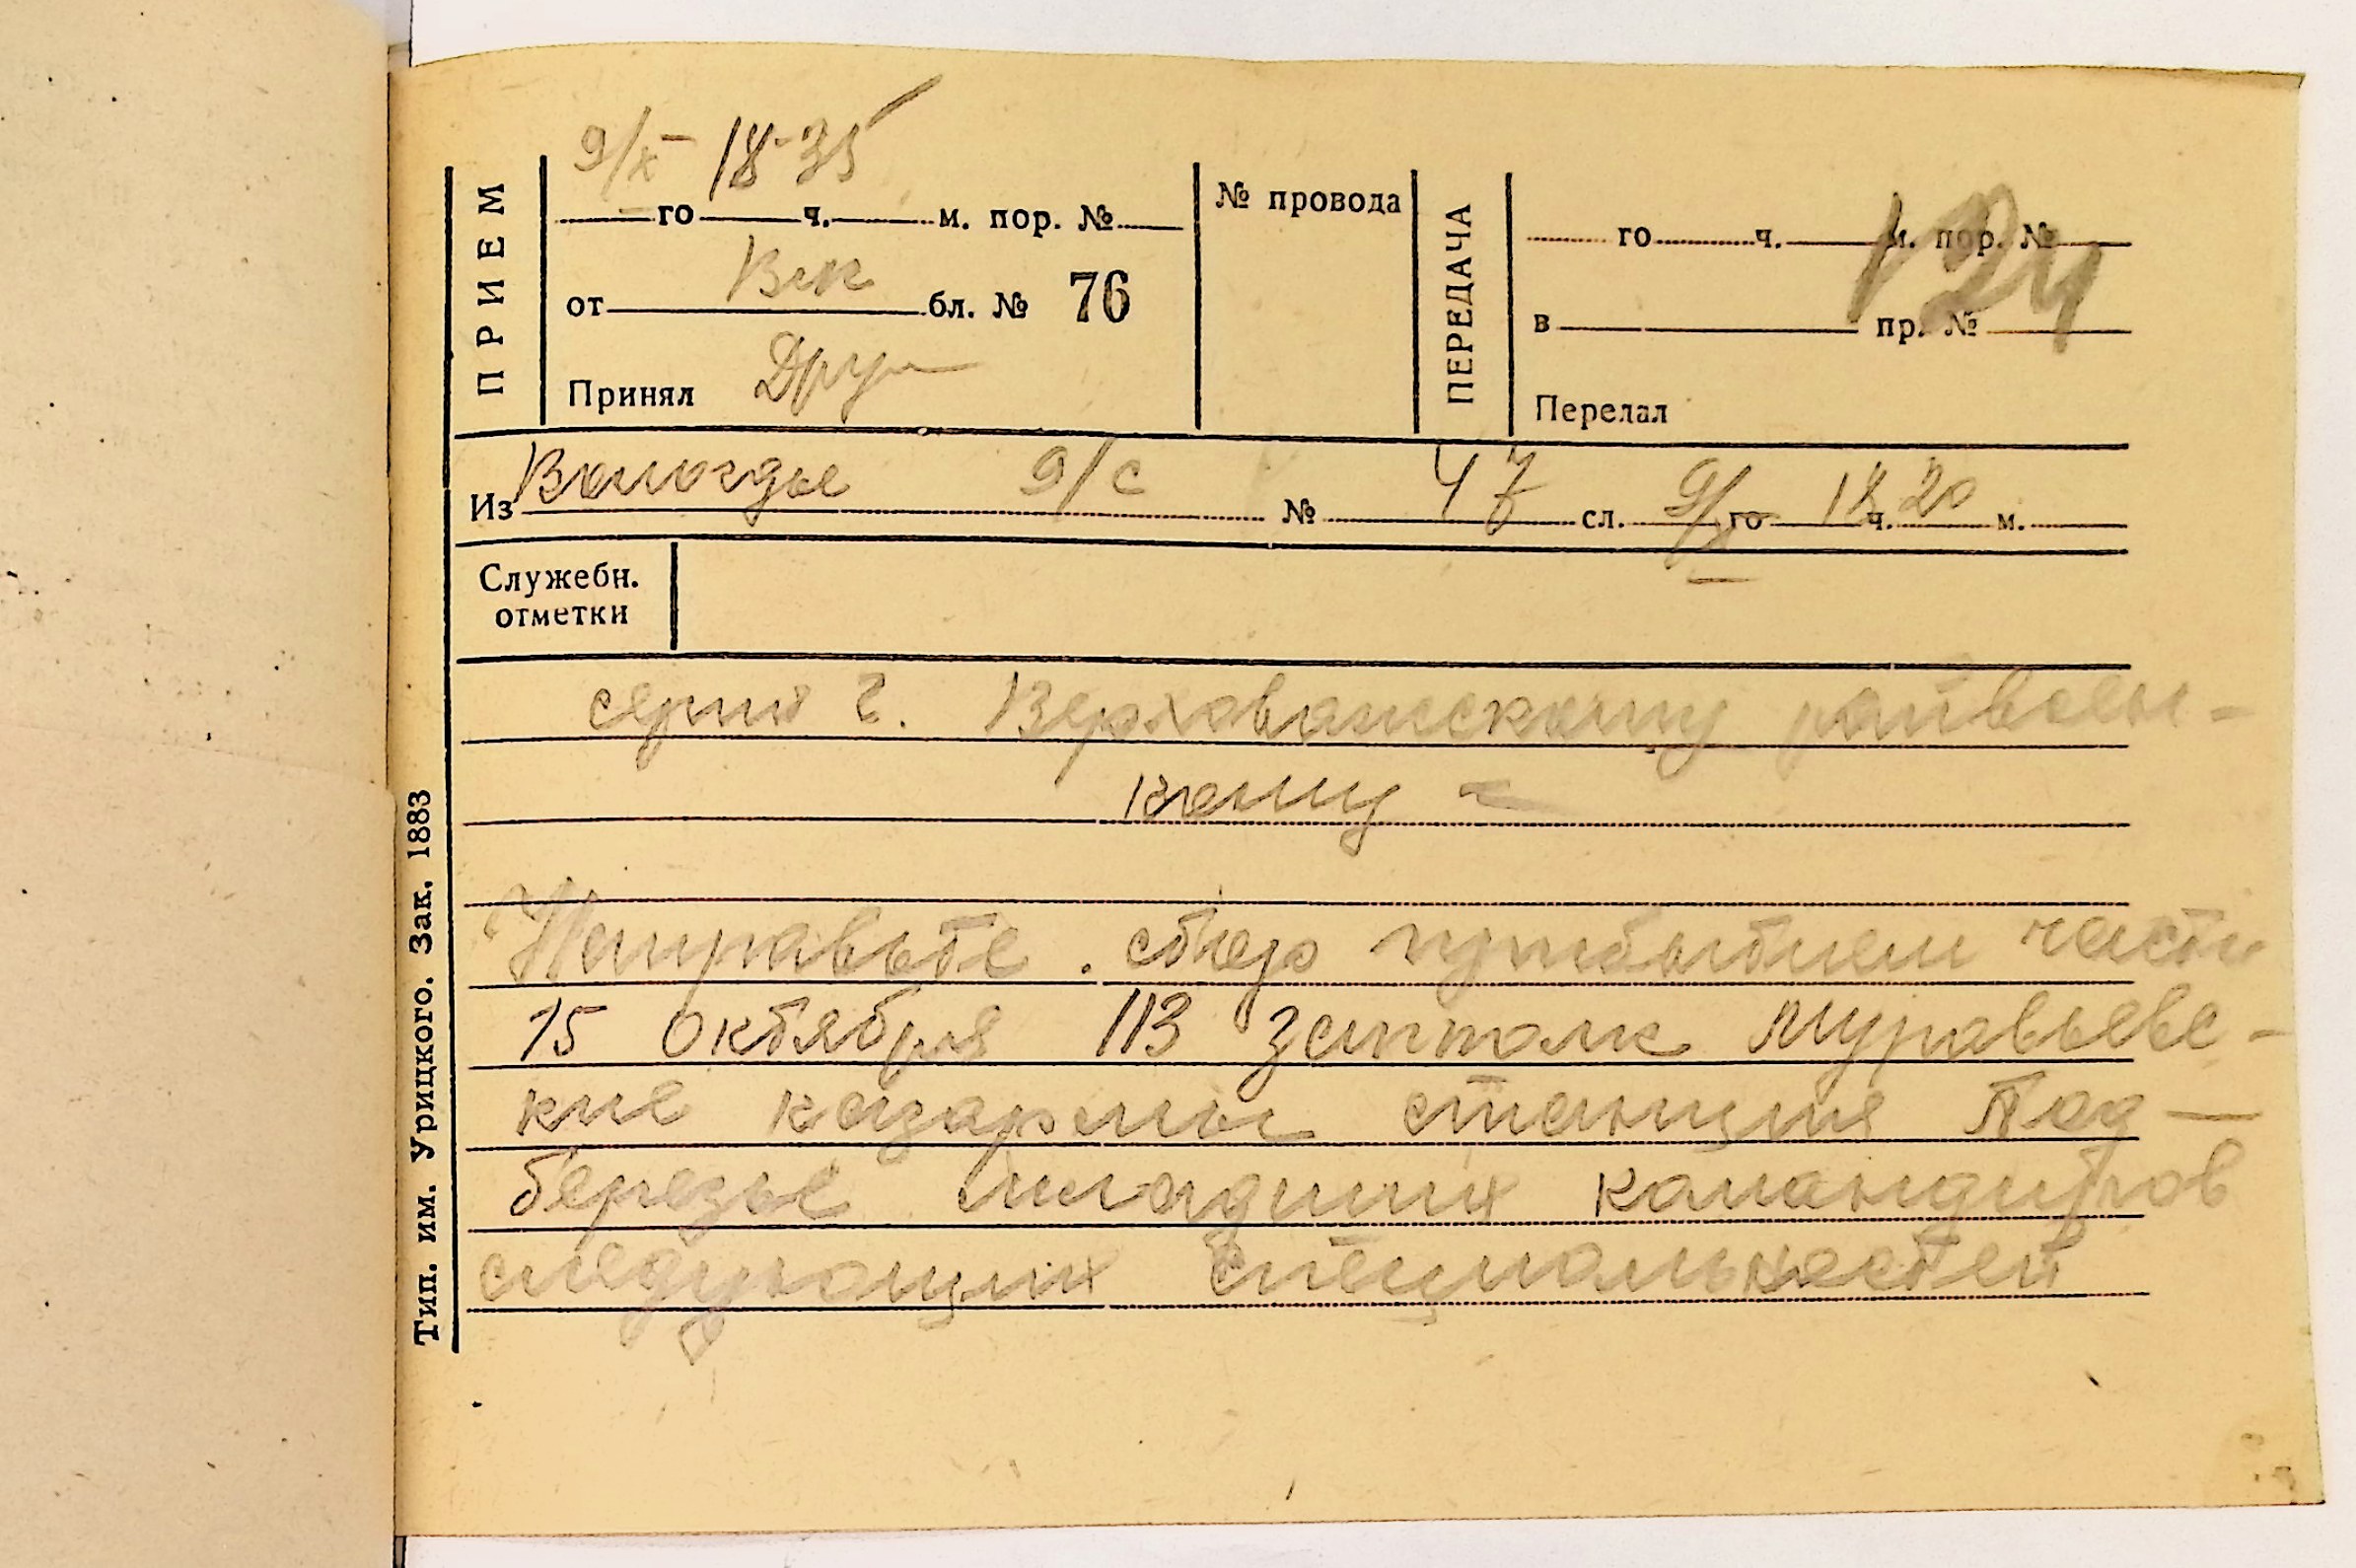 9/X 18-35
го ч. м. пор. №
ПРИЕМ
от Влк бл. № 76
Принял
№ провода
ПЕРЕДАЧА
го ч. м. пор. №
124
в пр. №
Передал
Из Вологды 9/с № 47 сл. 9/X го 18 ч. 20 м.
Служебн.
отметки
серия Г. Верховажскому райвоен-
кому =
Направьте сбор прибытием части
15 октября 113 запполк Муравьевс-
кие казармы станция Под-
березье младших командиров
следующих специальностей
Тип. им. Урицкого. Зак. 1883